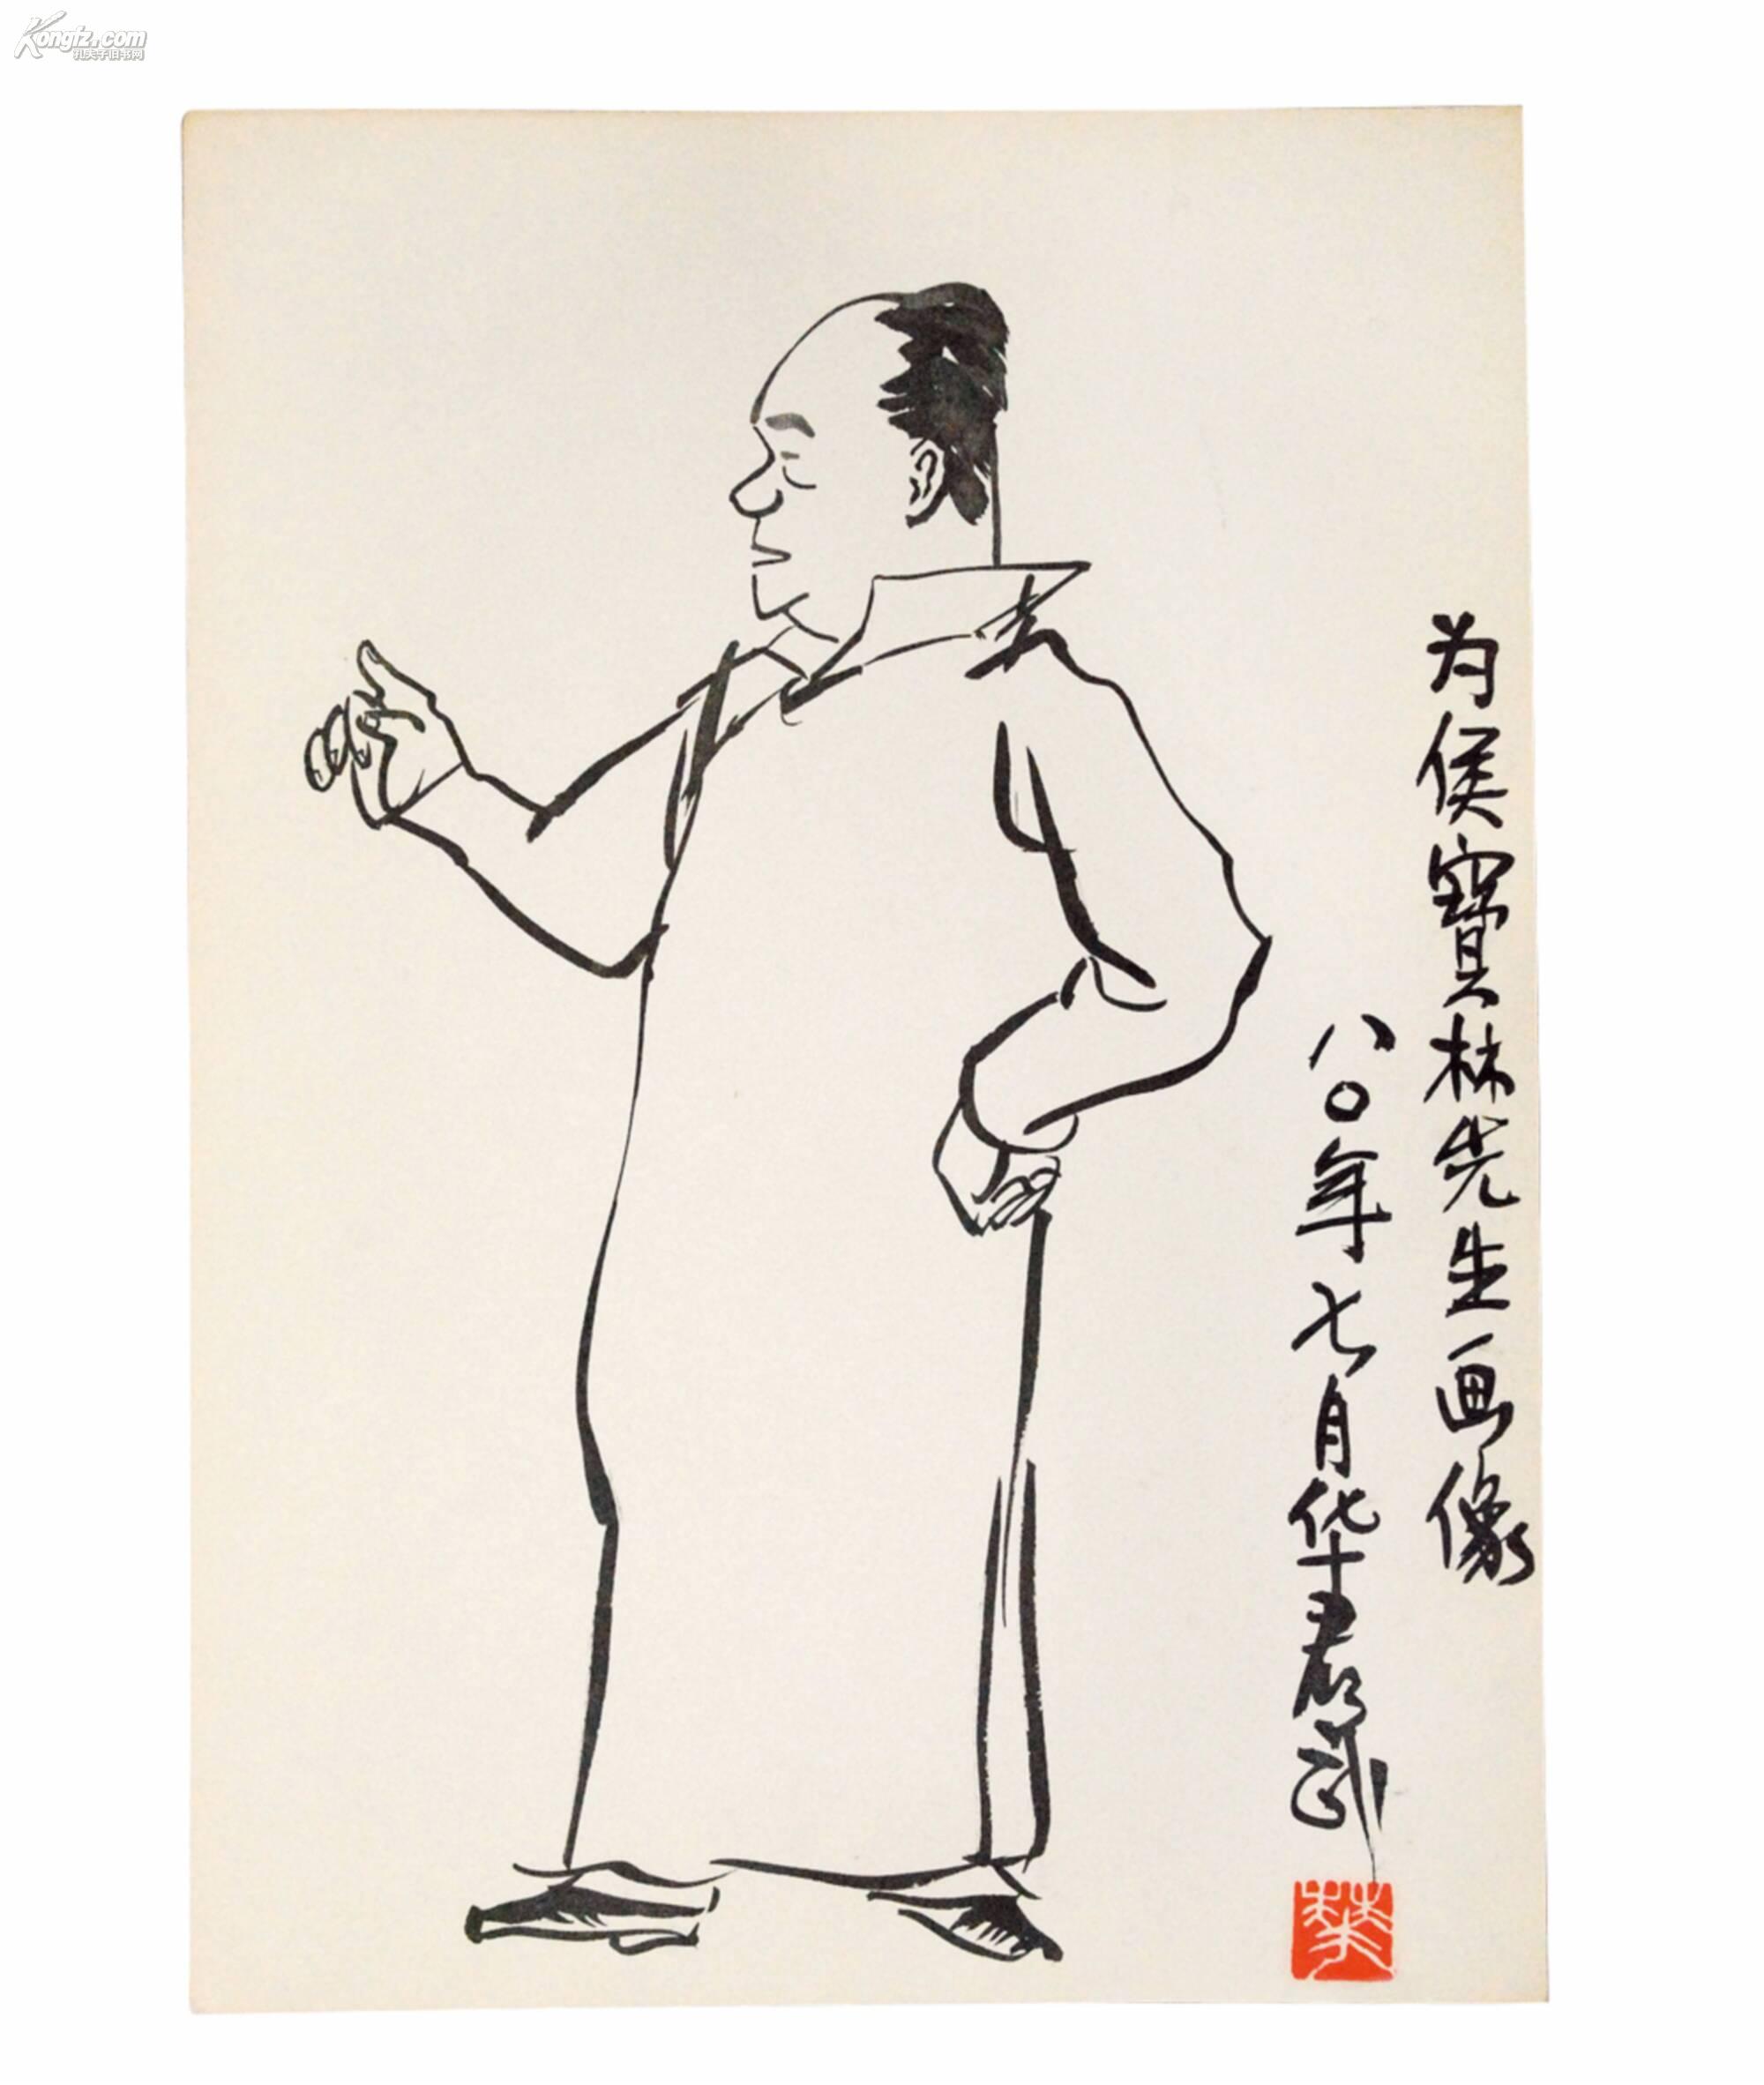 Kongfz.com
孔夫子旧书网
为侯寶林先生画像
八〇年七月华君武